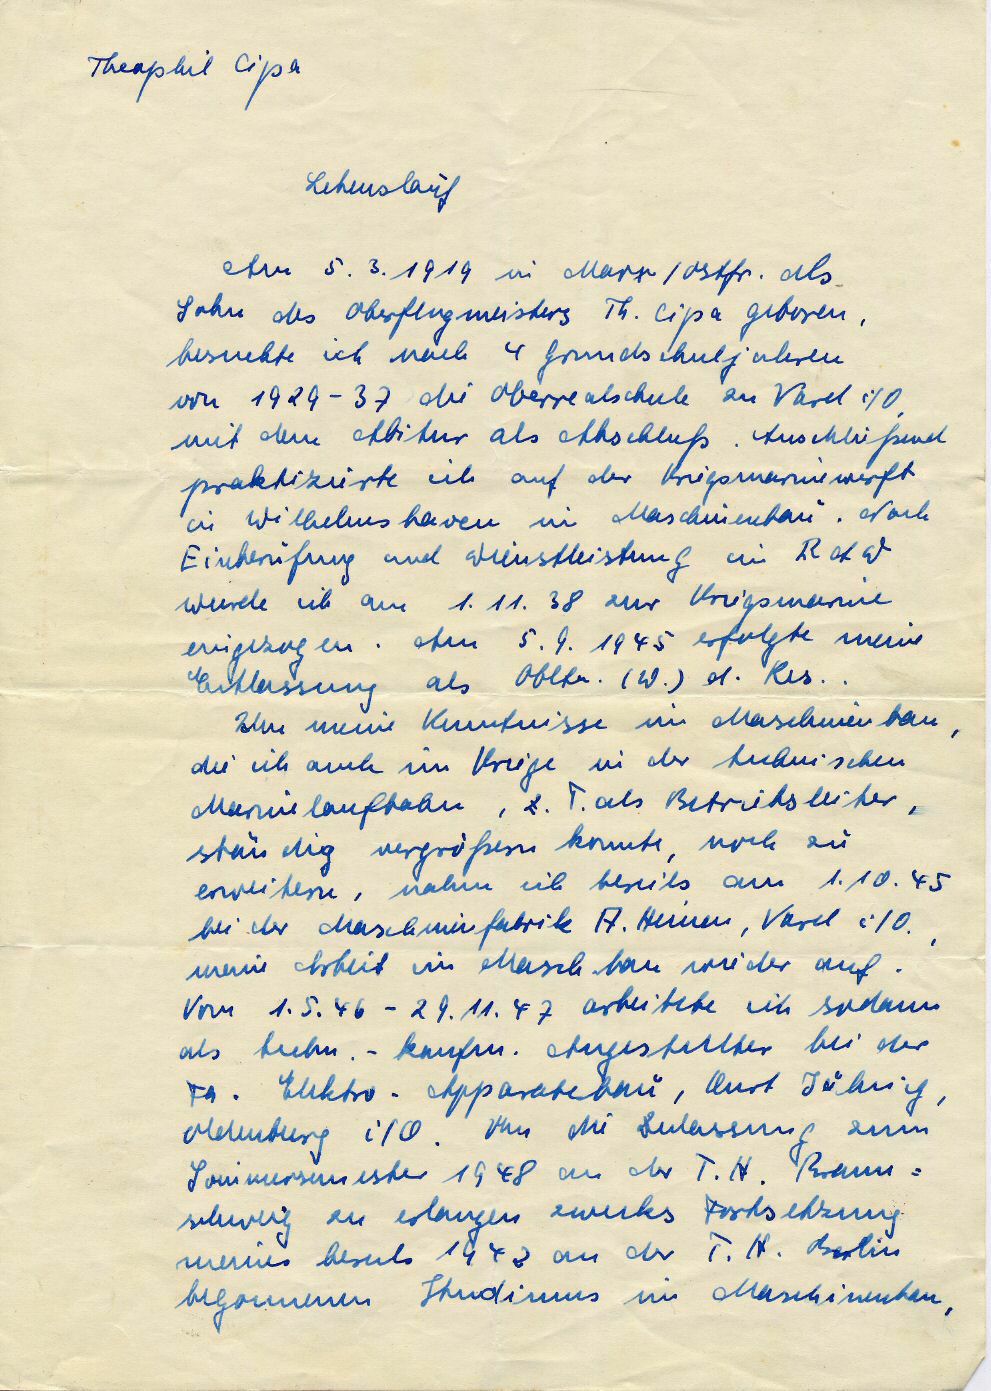 Theophil Cipa
Lebenslauf
Am 5.3.1919 in Marx/Ostfr. als
Sohn des Oberflugmeisters Th. Cipa geboren,
besuchte ich nach 4 Grundschuljahren
von 1929-37 die Oberrealschule zu Varel i/O.
mit dem Abitur als Abschluß. Anschließend
praktizierte ich auf der Kriegsmarinewerft
in Wilhelmshaven im Maschinenbau. Nach
Einberufung und Dienstleistung im RAD
wurde ich am 1.11.38 zur Kriegsmarine
eingezogen. Am 5.9.1945 erfolgte meine
Entlassung als Obltn. (W.) d. Res..
Um meine Kenntnisse im Maschinenbau,
die ich auch im Kriege in der technischen
Marinelaufbahn, z. T. als Betriebsleiter,
ständig vergrößern konnte, noch zu
erweitern, nahm ich bereits am 1.10.45
bei der Maschinenfabrik A. Heinen, Varel i/O.,
meine Arbeit im Masch.bau wieder auf.
Vom 1.5.46 - 29.11.47 arbeitete ich sodann
als techn.-kaufm. Angestellter bei der
Fa. Elektro-Apparatebau, Jührig,
Oldenburg i/O. Um die Zulassung zum
Sommersemester 1948 an der T.H. Braun=
schweig zu erlangen zwecks Fortsetzung
meines bereits an der T.H. Berlin
begonnenen Studiums im Maschinenbau,